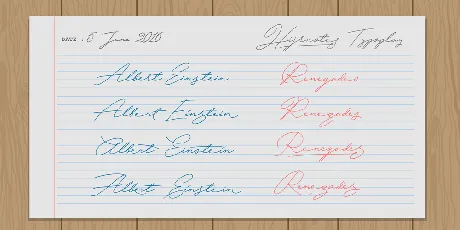 DATE : 6 June 2016 Hipsnotes Typoglay
Albert Einstein Renegades
Albert Einstein Renegades
Albert Einstein Renegades
Albert Einstein Renegades